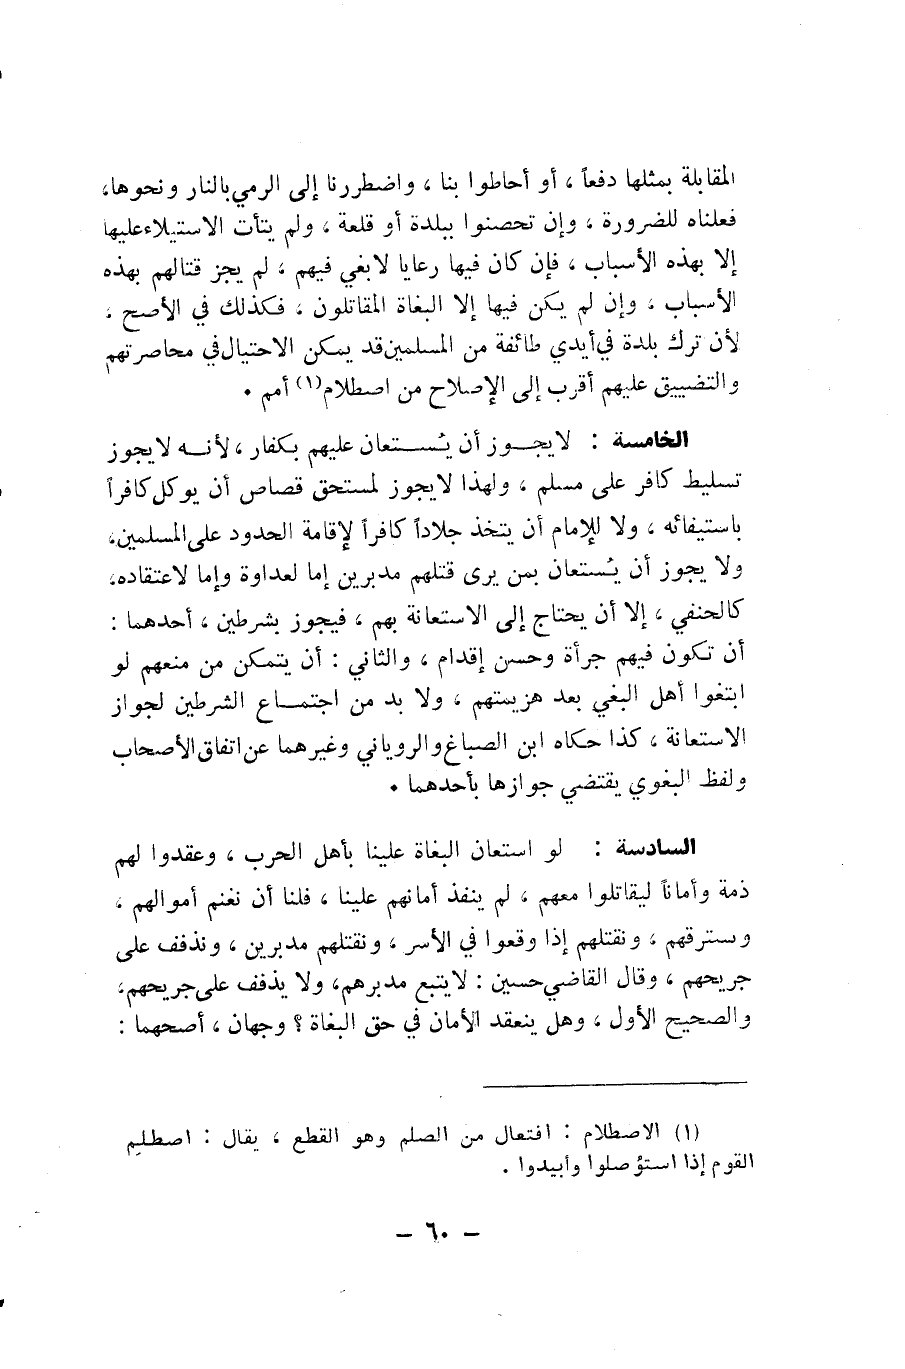 المقابلة بمثلها دفعاً ، أو أحاطوا بنا ، واضطررنا إلى الرمي بالنار ونحوها،
فعلناه للضرورة ، وإن تحصنوا ببلدة أو قلعة ، ولم يتأت الاستيلاء عليها
إلا بهذه الأسباب ، فإن كان فيها رعايا لا بغي فيهم ، لم يجز قتالهم بهذه
الأسباب ، وإن لم يكن فيها إلا البغاة المقاتلون ، فكذلك في الأصح ،
لأن ترك بلدة في أيدي طائفة من المسلمين قد يمكن الاحتيال في محاصرتهم
والتضييق عليهم أقرب إلى الإصلاح من اصطلام(١) أمم .
الخامسة : لا يجوز أن يُستعان عليهم بكفار ، لأنه لا يجوز
تسليط كافر على مسلم ، ولهذا لا يجوز لمستحق قصاص أن يوكل كافراً
باستيفائه ، ولا للإمام أن يتخذ جلاداً كافراً لإقامة الحدود على المسلمين،
ولا يجوز أن يُستعان بمن يرى قتلهم مدبرين إما لعداوة وإما لاعتقاده،
كالحنفي ، إلا أن يحتاج إلى الاستعانة بهم ، فيجوز بشرطين ، أحدهما :
أن تكون فيهم جرأة وحسن إقدام ، والثاني : أن يتمكن من منعهم لو
ابتغوا أهل البغي بعد هزيمتهم ، ولا بد من اجتماع الشرطين لجواز
الاستعانة ، كذا حكاه ابن الصباغ والروياني وغيرهما عن اتفاق الأصحاب
ولفظ البغوي يقتضي جوازها بأحدهما .
السادسة : لو استعان البغاة علينا بأهل الحرب ، وعقدوا لهم
ذمة وأماناً ليقاتلوا معهم ، لم ينفذ أمانهم علينا ، فلنا أن نغنم أموالهم ،
وسترقهم ، ونقتلهم إذا وقعوا في الأسر ، ونقتلهم مدبرين ، ونذفف على
جريحهم ، وقال القاضي حسين : لا يتبع مدبرهم، ولا يذفف على جريحهم،
والصحيح الأول ، وهل ينعقد الأمان في حق البغاة ؟ وجهان ، أصحهما :
(١) الاصطلام : افتعال من الصلم وهو القطع ، يقال : اصطلم
القوم إذا استؤصلوا وأبيدوا .
– ٦٠ –